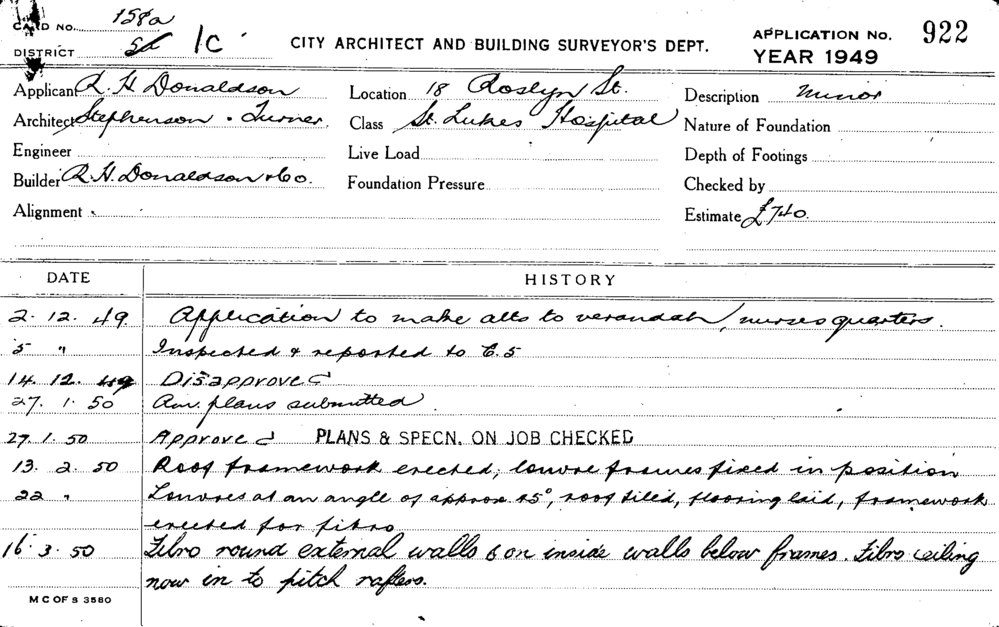 CARD NO. 158a
DISTRICT 1C
CITY ARCHITECT AND BUILDING SURVEYOR'S DEPT.
APPLICATION NO. 922
YEAR 1949
Applicant R. H Donaldson
Location 18 Roslyn St.
Description Minor
Architect Stephenson . Turner
Class St. Lukes Hospital
Nature of Foundation
Engineer
Live Load
Depth of Footings
Builder R. H. Donaldson & Co.
Foundation Pressure
Checked by
Alignment
Estimate £740.
DATE HISTORY
2. 12. 49. Application to make alts to verandah, nurses quarters.
5 " Inspected & reported to C.S
14. 12. 49 Disapproved
27. 1. 50 Am. plans submitted
27. 1. 50 Approved PLANS & SPECN. ON JOB CHECKED
13. 2. 50 Roof framework erected, louvre frames fixed in position
22 " Louvres at an angle of approx 45°, roof tiled, flooring laid, framework
erected for fibro
16. 3. 50 Fibro round external walls & on inside walls below frames. Fibro ceiling
now in to pitch rafters.
M C OF S 3580